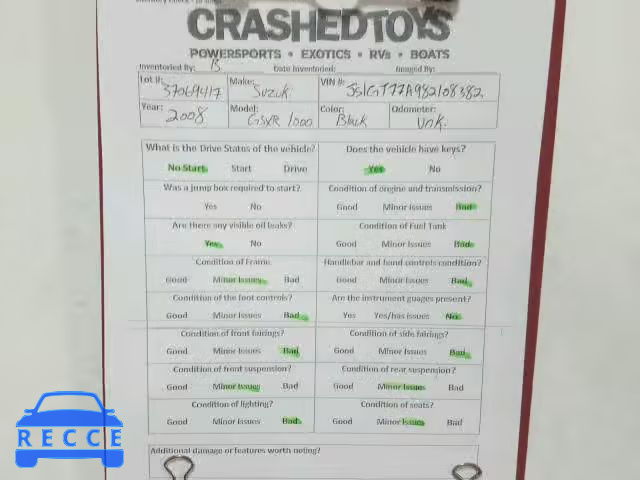 CRASHEDTOYS
POWERSPORTS • EXOTICS • RVs • BOATS
Inventoried By: B Date Inventoried: Imaged By:
Lot #: 37069417 Make: Suzuk VIN #: JS1GT77A982108382
Year: 2008 Model: GSXR 1000 Color: Black Odometer: Unk.
What is the Drive Status of the vehicle? Does the vehicle have keys?
No Start Start Drive Yes No
Was a jump box required to start? Condition of engine and transmission?
Yes No Good Minor Issues Bad
Are there any visible oil leaks? Condition of Fuel Tank
Yes No Good Minor Issues Bad
Condition of Frame Handlebar and hand controls condition?
Good Minor Issues Bad Good Minor Issues Bad
Condition of the foot controls? Are the instrument guages present?
Good Minor Issues Bad Yes Yes/has issues No
Condition of front fairings? Condition of side fairings?
Good Minor Issues Bad Good Minor Issues Bad
Condition of front suspension? Condition of rear suspension?
Good Minor Issues Bad Good Minor Issues Bad
Condition of lighting? Condition of seats?
Good Minor Issues Bad Good Minor Issues Bad
Additional damage or features worth noting?
RECCE